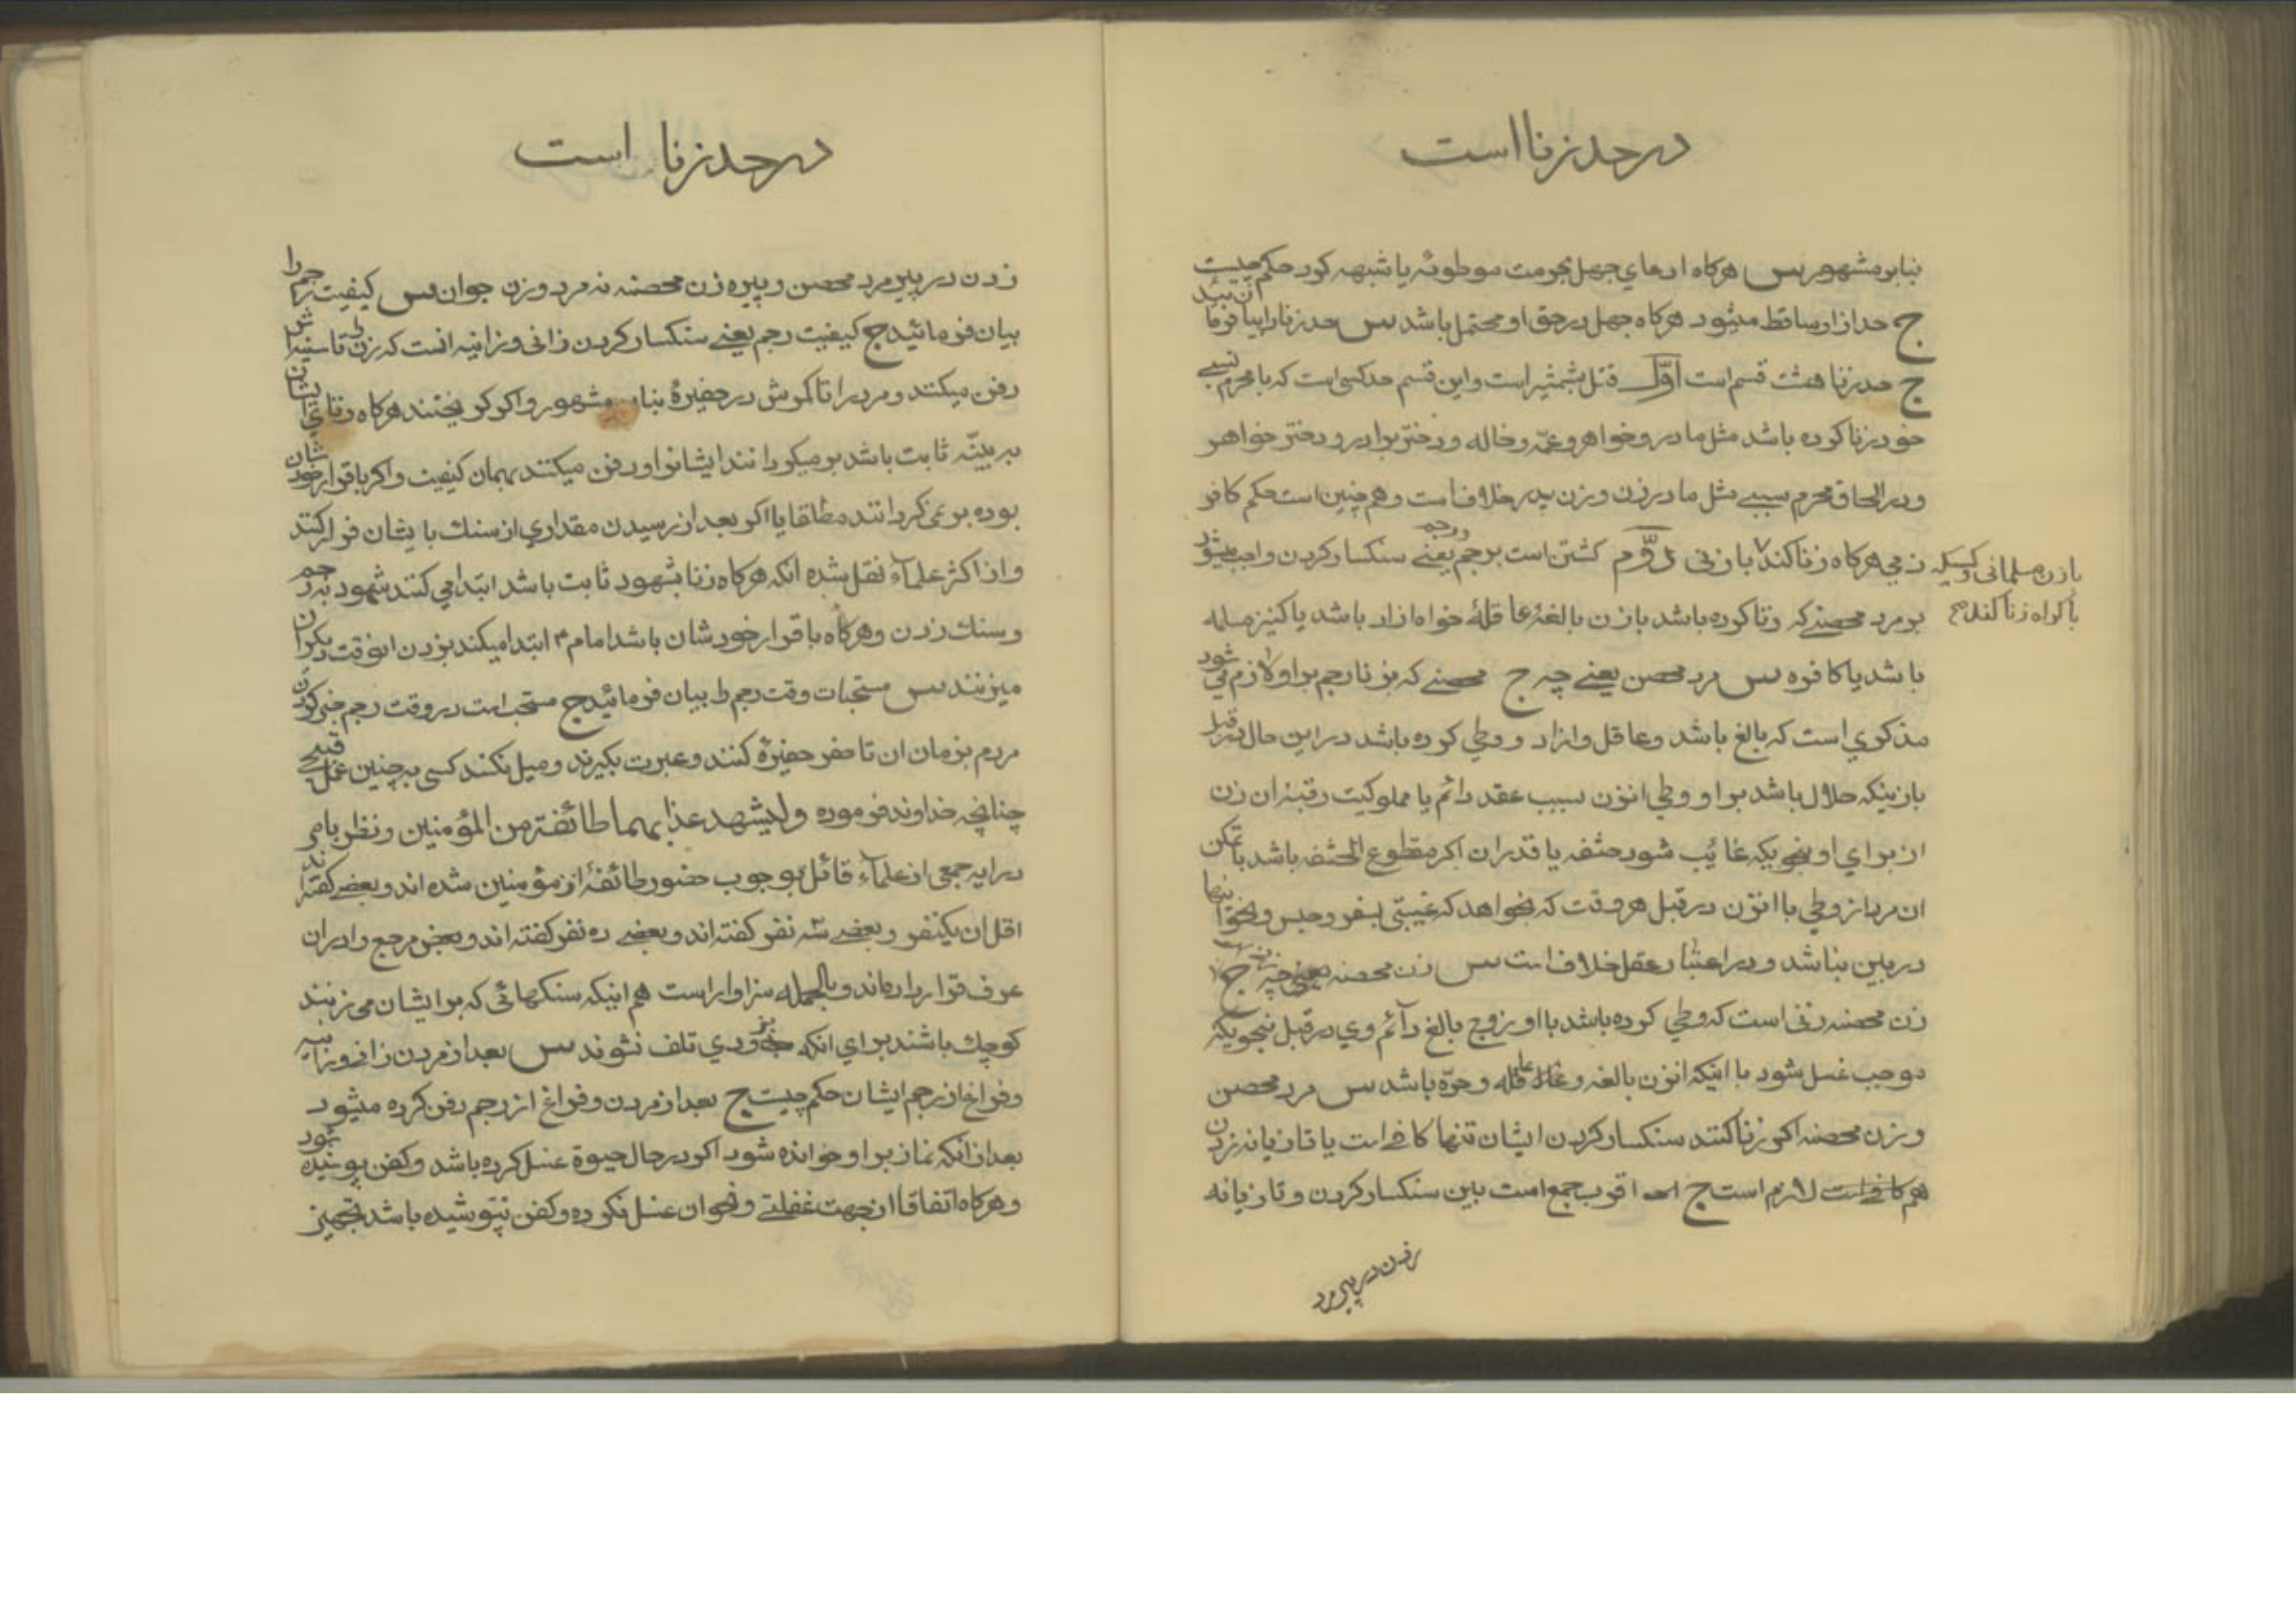 در حد زنا است
بنابر مشهور س هرگاه ادعای جهل بحرمت موطوئه یا شبهه کرد حکم چیست
ج حد از او ساقط میشود هرگاه جهل در حق او محتمل باشد س حد زنا را بیان فرمائید
ج حد زنا هشت قسم است اوّل قتل بشمشیر است و این قسم حد کسی است که با محرم نسبی
خود زنا کرده باشد مثل مادر و خواهر و عمّه و خاله و دختر برادر و دختر خواهر
و در الحاق محرم سببی مثل مادر زن و زن پدر خلاف است و هم چنین است حکم کافر
ذمی هرگاه زنا کند با زنی دوّم کشتن است برجم یعنی سنکسار کردن و رجم واجب میشود
بازن مسلمانی وکسیکه
باکراه زنا کند
بر مرد محصنی که زنا کرده باشد با زن بالغهٔ عاقلهٔ خواه ازاد باشد یا کنیز مسلمه
باشد یا کافره س مرد محصن یعنی چه ج محصنی که بزنا رجم بر او لازم می شود
مذکوری است که بالغ باشد و عاقل و ازاد و وطی کرده باشد در این حال در قبل
بازنیکه حلال باشد بر او وطی انزن بسبب عقد دائم یا مملوکیت رقبهٔ ان زن
از برای او بنحویکه غائب شود حشفه یا قدر ان اکر مقطوع الحشفه باشد با تمکن
ان مرد از وطی با انزن در قبل هر وقت که بخواهد که غیبتی بسفر و حبس و نحو اینها
در بین نباشد و در اعتبار عقل خلاف است س زن محصنه یعنی چه ج
زن محصنه زنی است که وطی کرده باشد با او زوج بالغ دائم وی در قبل بنحویکه
موجب غسل شود با اینکه انزن بالغه و عاقله و حرّه باشد س مرد محصن
و زن محصنه اکر زنا کنند سنکسار کردن ایشان تنها کافی است یا تازیانه زدن
هم کافی است لازم است ج اقرب جمع است بین سنکسار کردن و تازیانه
زدن در پیر مرد
در حد زنا است
زدن در پیر مرد محصن و پیره زن محصنه نه مرد و زن جوان س کیفیت رجم را
بیان فرمائید ج کیفیت رجم یعنی سنکسار کردن زانی و زانیه انست که زن را تا سینه اش
دفن میکنند و مرد را تا کمرش در حفیرهٔ بنابر مشهور و اکر گریختند هرگاه زنای ایشان
به بیّنه ثابت باشد بر میکردانند ایشانرا و دفن میکنند بهمان کیفیت و اکر باقرار خودشان
بوده بر نمی گردانند مطلقا یا اکر بعد از رسیدن مقداری از سنك بایشان فرار کنند
و از اکثر علماء نقل شده انکه هرگاه زنا بشهود ثابت باشد ابتدا می کنند شهود برجم
و سنك زدن و هرگاه باقرار خودشان باشد امام ۴ ابتدا میکند بزدن انوقت دیکران
میزنند س مستحبات وقت رجم را بیان فرمائید ج مستحب است در وقت رجم خبر کردن
مردم بزمان ان تا حضر حفیرهٔ کنند و عبرت بکیرند و میل نکند کسی به چنین عمل قبیح
چنانچه خداوند فرموده ولیشهد عذابهما طائفة من المؤمنین و نظر بامر
در ایه جمعی از علماء قائل بوجوب حضور طائفهٔ از مؤمنین شده اند و بعضی کفته اند
اقل ان یکنفر و بعضی سه نفر کفته اند و بعضی ده نفر کفته اند و بعض مرجع را در ان
عرف قرار داده اند و بالجمله سزاوار است هم اینکه سنکهائی که بر ایشان می زنند
کوچك باشند برای انکه بزودی تلف نشوند س بعد از مردن زانی و زانیه
و فراغ از رجم ایشان حکم چیست ج بعد از مردن و فراغ از رجم دفن کرده میشود
بعد از انکه نماز بر او خوانده شود اکر در حال حیوة غسل کرده باشد و کفن پوشیده بود
و هرگاه اتفاقا از جهت غفلتی و نحو ان غسل نکرده و کفن نپوشیده باشد تجهیز